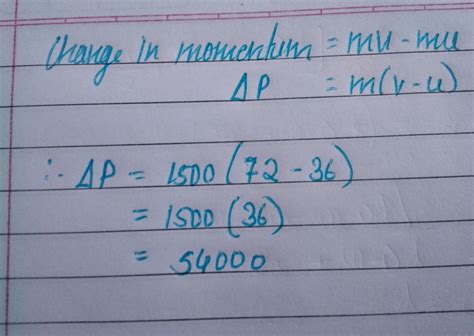 Change in momentum = mv - mu
ΔP = m(v-u)
∴ ΔP = 1500 (72 - 36)
= 1500 (36)
= 54000